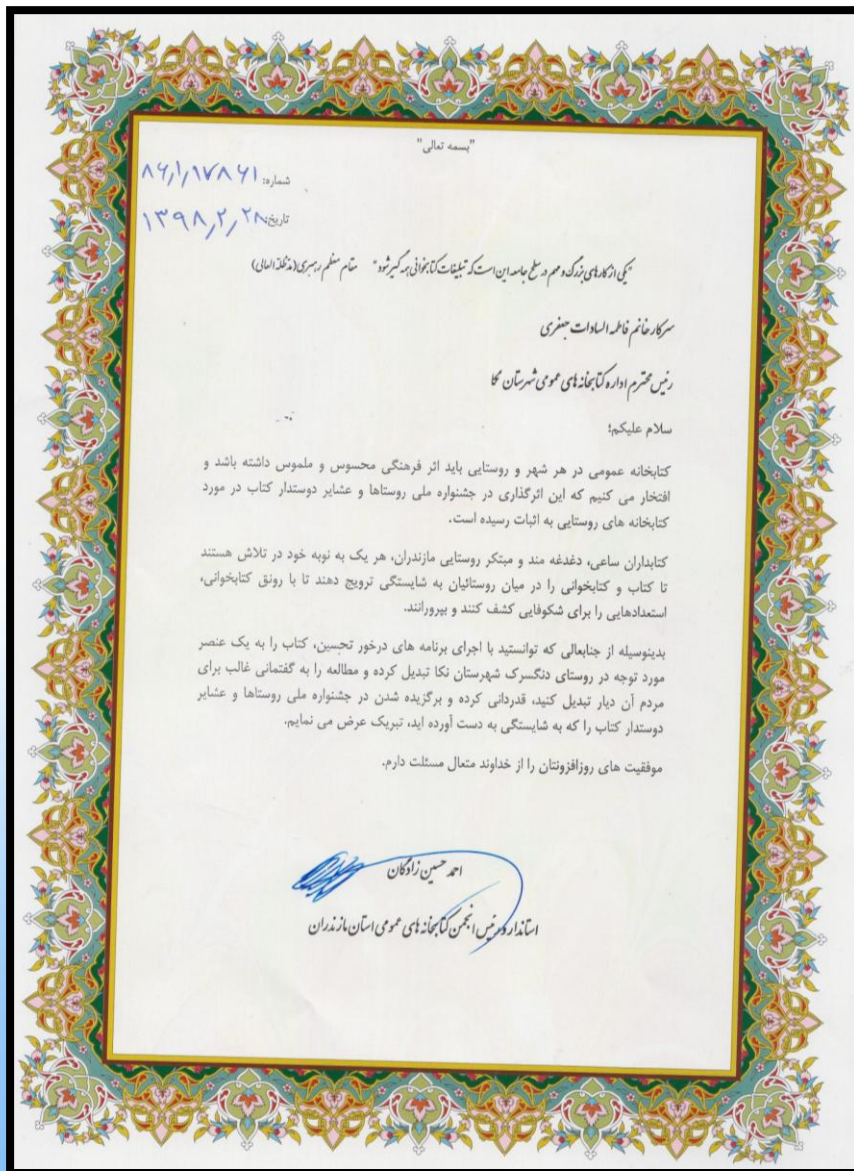 "بسمه تعالی"
شماره: ۸۶/۱/۱۷۸۶۱
تاریخ: ۱۳۹۸/۲/۲۸
"یکی از کارهای بزرگ و مهم در سطح جامعه این است که تبلیغات کتابخوانی همه گیر شود" مقام معظم رهبری(مدظله العالی)
سرکار خانم فاطمه السادات جعفری
رئیس محترم اداره کتابخانه های عمومی شهرستان نکا
سلام علیکم؛
کتابخانه عمومی در هر شهر و روستایی باید اثر فرهنگی محسوس و ملموس داشته باشد و
افتخار می کنیم که این اثرگذاری در جشنواره ملی روستاها و عشایر دوستدار کتاب در مورد
کتابخانه های روستایی به اثبات رسیده است.
کتابداران ساعی، دغدغه مند و مبتکر روستایی مازندران، هر یک به نوبه خود در تلاش هستند
تا کتاب و کتابخوانی را در میان روستائیان به شایستگی ترویج دهند تا با رونق کتابخوانی،
استعدادهایی را برای شکوفایی کشف کنند و بپرورانند.
بدینوسیله از جنابعالی که توانستید با اجرای برنامه های درخور تحسین، کتاب را به یک عنصر
مورد توجه در روستای دنگسرک شهرستان نکا تبدیل کرده و مطالعه را به گفتمانی غالب برای
مردم آن دیار تبدیل کنید، قدردانی کرده و برگزیده شدن در جشنواره ملی روستاها و عشایر
دوستدار کتاب را که به شایستگی به دست آورده اید، تبریک عرض می نمایم.
موفقیت های روزافزونتان را از خداوند متعال مسئلت دارم.
احمد حسین زادگان
استاندار و رئیس انجمن کتابخانه های عمومی استان مازندران